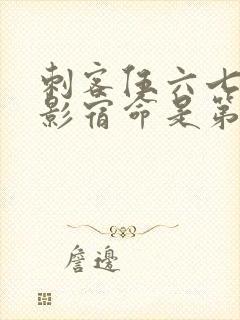 刺客伍六七
影宿命是第
詹邊